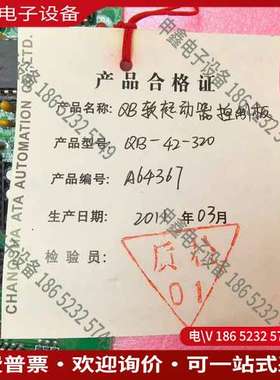 电子设备
申鑫电子设备 186 5232 5749
产品合格证
产品名称: QB软起动器控制板
产品型号: QB-42-320
产品编号: A64367
生产日期 2011年03月
检验员:
质检
01
CHANGSHA ATA AUTOMATION CO., LTD.
电\V 186 5232 5749
费普票·欢迎询价·可一站式